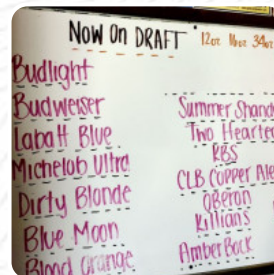 Now On DRAFT 12oz 16oz 34oz
Budlight
Budweiser
Labatt Blue
Michelob Ultra
Dirty Blonde
Blue Moon
Blood Orange
Summer Shandy
Two Hearted
KBS
CLB Copper Ale
Oberon
Killians
Amber Bock